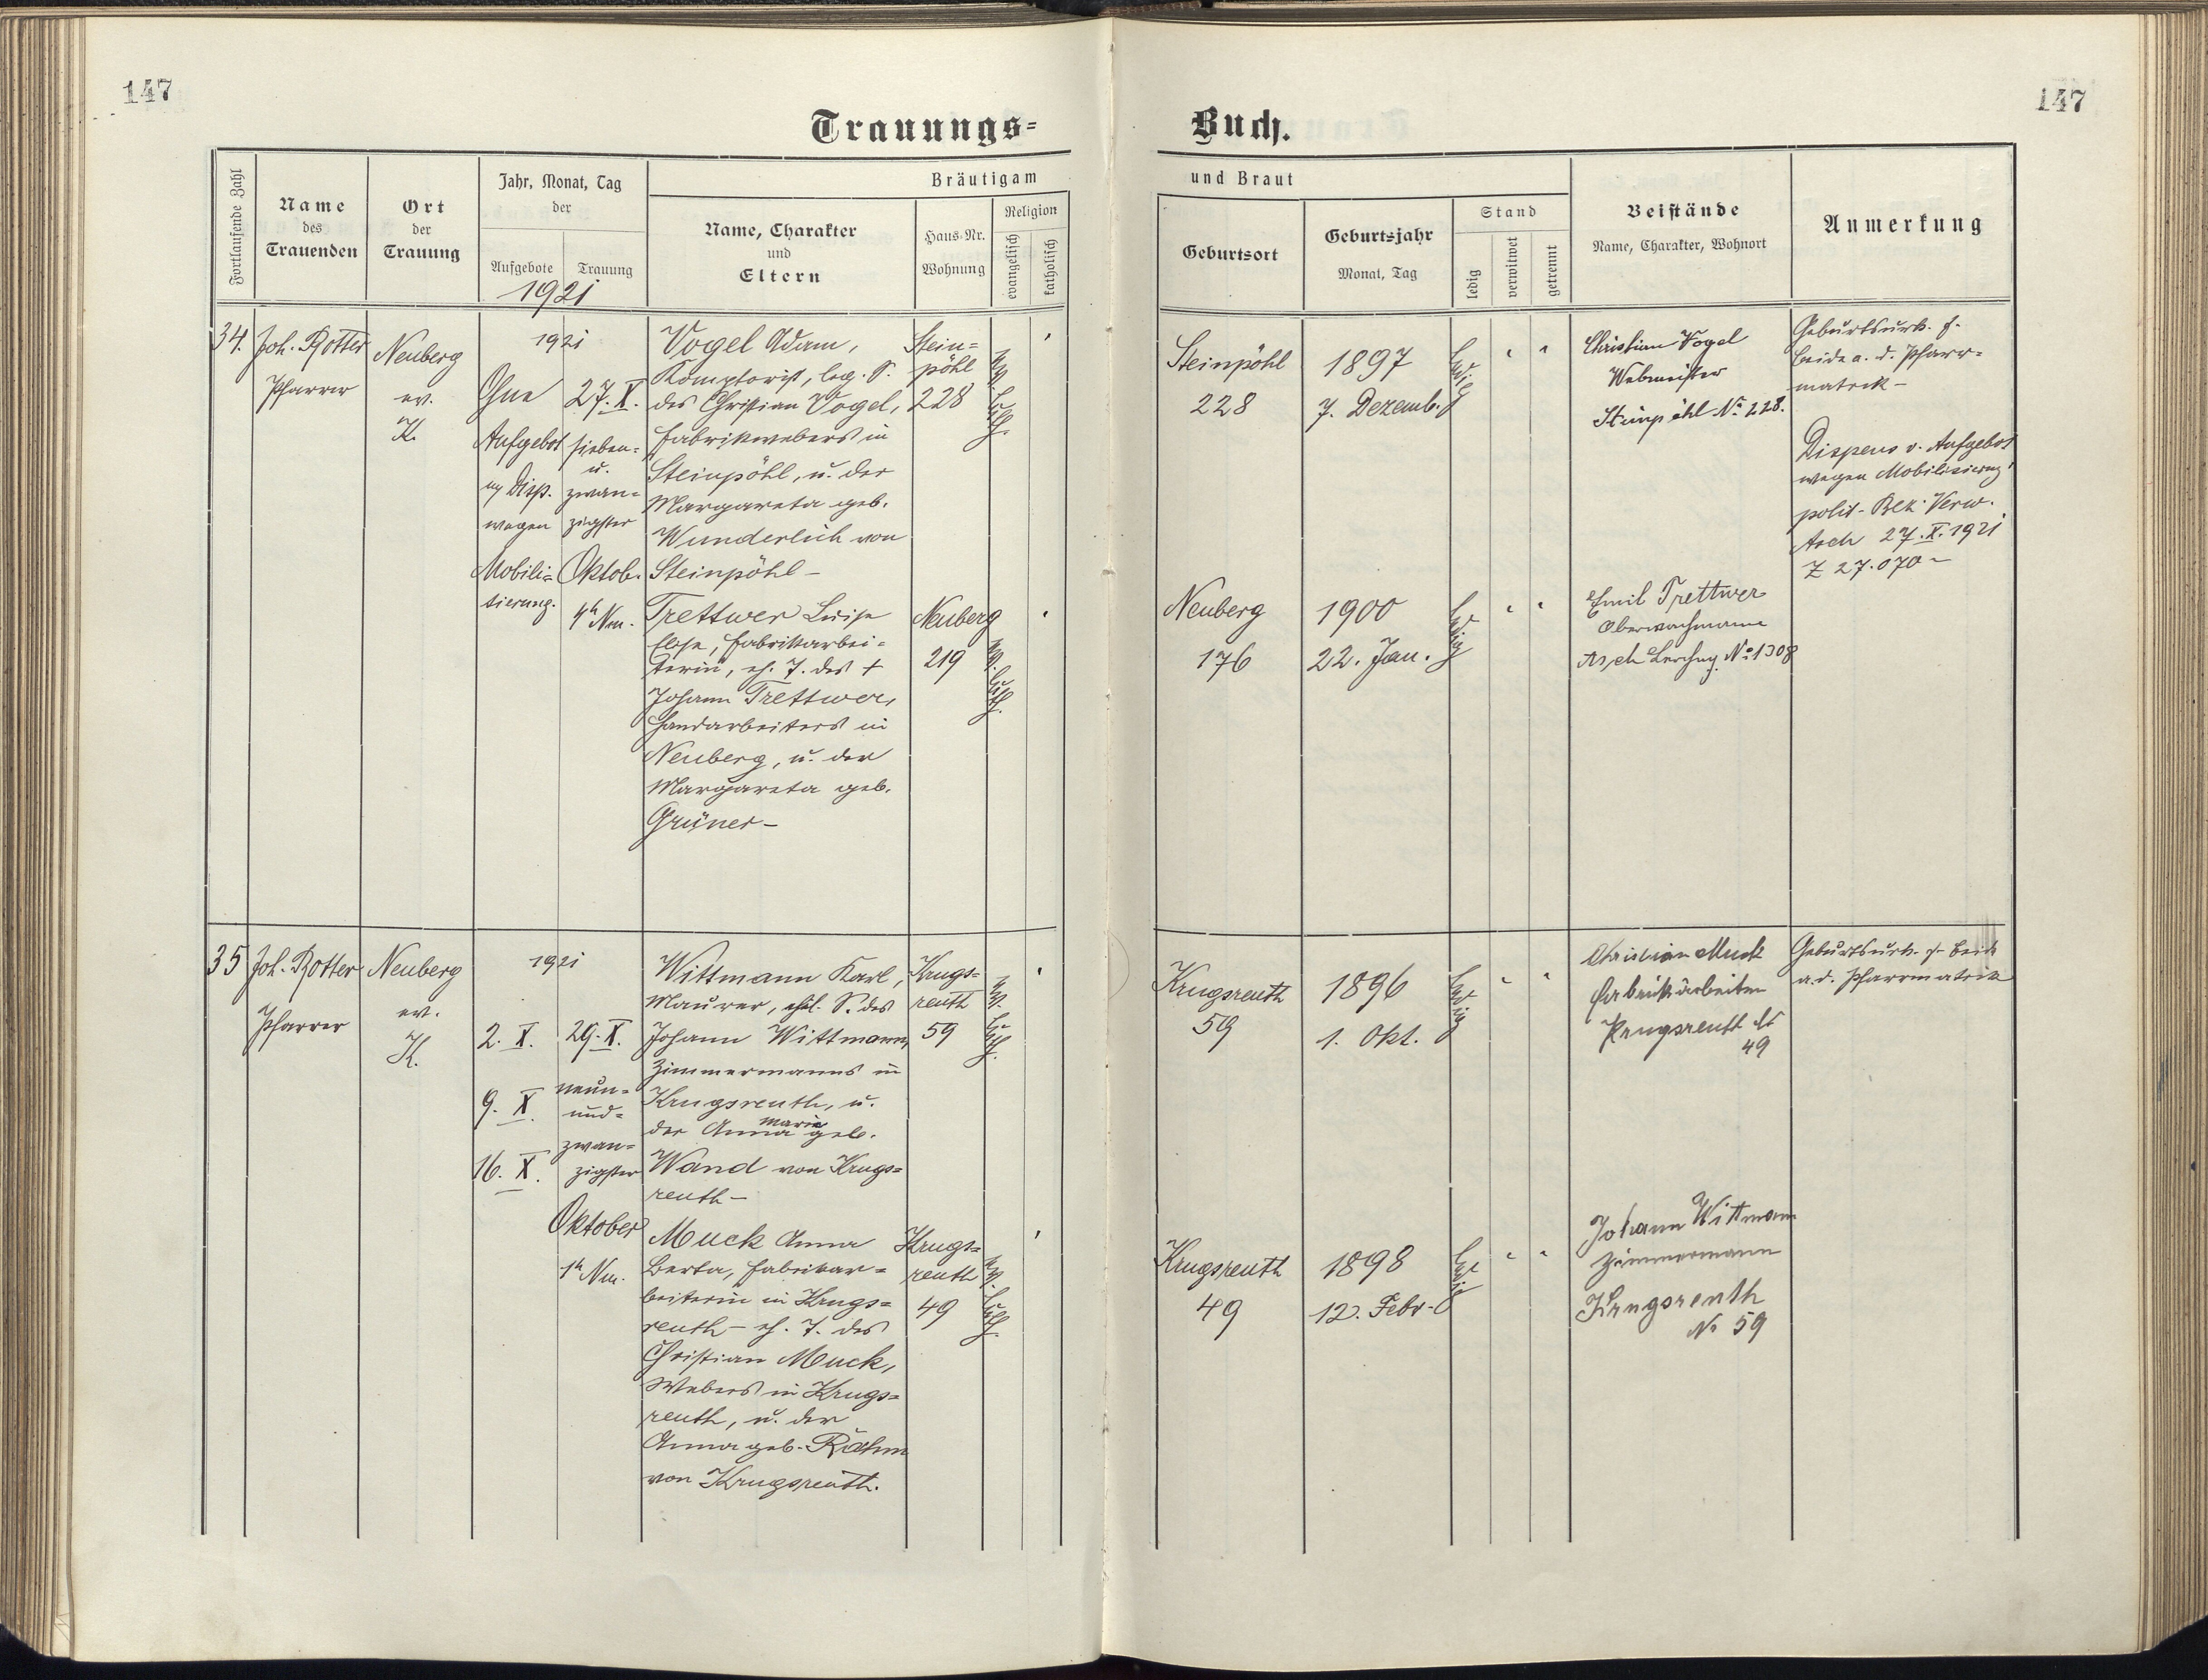 147
147
Trauungs=
Buch.
Fortlaufende Zahl
Name
des
Trauenden
Ort
der
Trauung
Jahr, Monat, Tag
der
Aufgebote
Trauung
1921
Bräutigam
Name, Charakter
und
Eltern
Haus-Nr.
Wohnung
Religion
evangelisch
katholisch
und Braut
Geburtsort
Geburtsjahr
Monat, Tag
Stand
ledig
verwitwet
getrennt
Beistände
Name, Charakter, Wohnort
Anmerkung
34.
Joh. Rotter
Pfarrer
Neuberg
ev.
K.
1921
Ohne
Aufgebot
Disp.
wegen
Mobili=
sierung.
27. X.
sieben=
u.
zwan=
zigster
Oktob.
4h Nm.
Vogel Adam,
Komptorist, leg. S.
des Christian Vogel,
Fabrikwebers in
Steinpöhl, u. der
Margareta geb.
Wunderlich von
Steinpöhl –
Stein=
pöhl
228
ev.
luth.
Steinpöhl
228
1897
7. Dezemb.
ledig
Christian Vogel
Webmeister
Steinpöhl No 228.
Geburtsurk. f.
beide a. d. Pfarr=
matrik –
Dispens v. Aufgebot
wegen Mobilisierung
polit. Bez. Verw.
Asch 27. X. 1921
Z 27.070 –
Trettwer Luise
Elise, Fabrikarbei=
terin, eh. T. des +
Johann Trettwer,
Handarbeiters in
Neuberg, u. der
Margareta geb.
Grüner –
Neuberg
219
ev.
luth.
Neuberg
176
1900
22. Jan.
ledig
Emil Trettwer
Oberwachmann
Asch No 1308
35
Joh. Rotter
Pfarrer
Neuberg
ev.
K.
1921
2. X.
9. X.
16. X.
29. X.
neun=
und=
zwan=
zigster
Oktober
1h Nm.
Wittmann Karl,
Maurer, ehel. S. des
Johann Wittmann,
Zimmermanns in
Krugsreuth, u.
der Anna Marie geb.
Wand von Krugs=
reuth –
Krugs=
reuth
59
ev.
luth.
Krugsreuth
59
1896
1. Okt.
ledig
Christian Muck
Fabrikarbeiter
Krugsreuth
49
Geburtsurk. f. beide
a. d. Pfarrmatrik
Muck Anna
Berta, Fabrikar=
beiterin in Krugs=
reuth – eh. T. des
Christian Muck,
Webers in Krugs=
reuth, u. der
Anna geb. Rahm
von Krugsreuth.
Krugs=
reuth
49
ev.
luth.
Krugsreuth
49
1898
12. Febr.
ledig
Johann Wittmann
Zimmermann
Krugsreuth
No 59